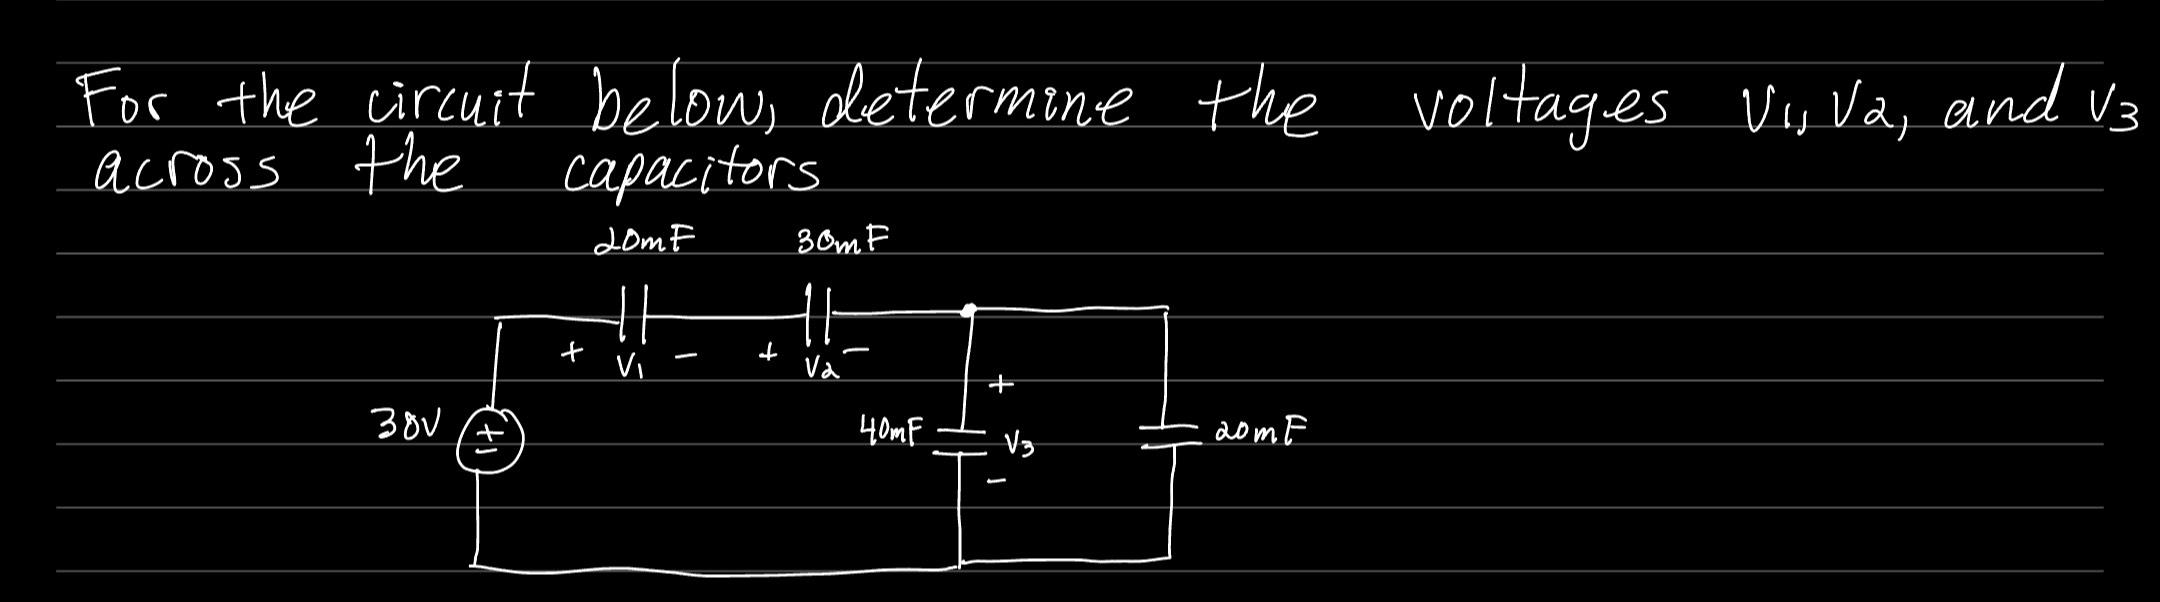 For the circuit below, determine the voltages V1, V2, and V3
across the capacitors
20mF 30mF
+ V1 - + V2 -
+
30V + - 40mF V3 20mF
-